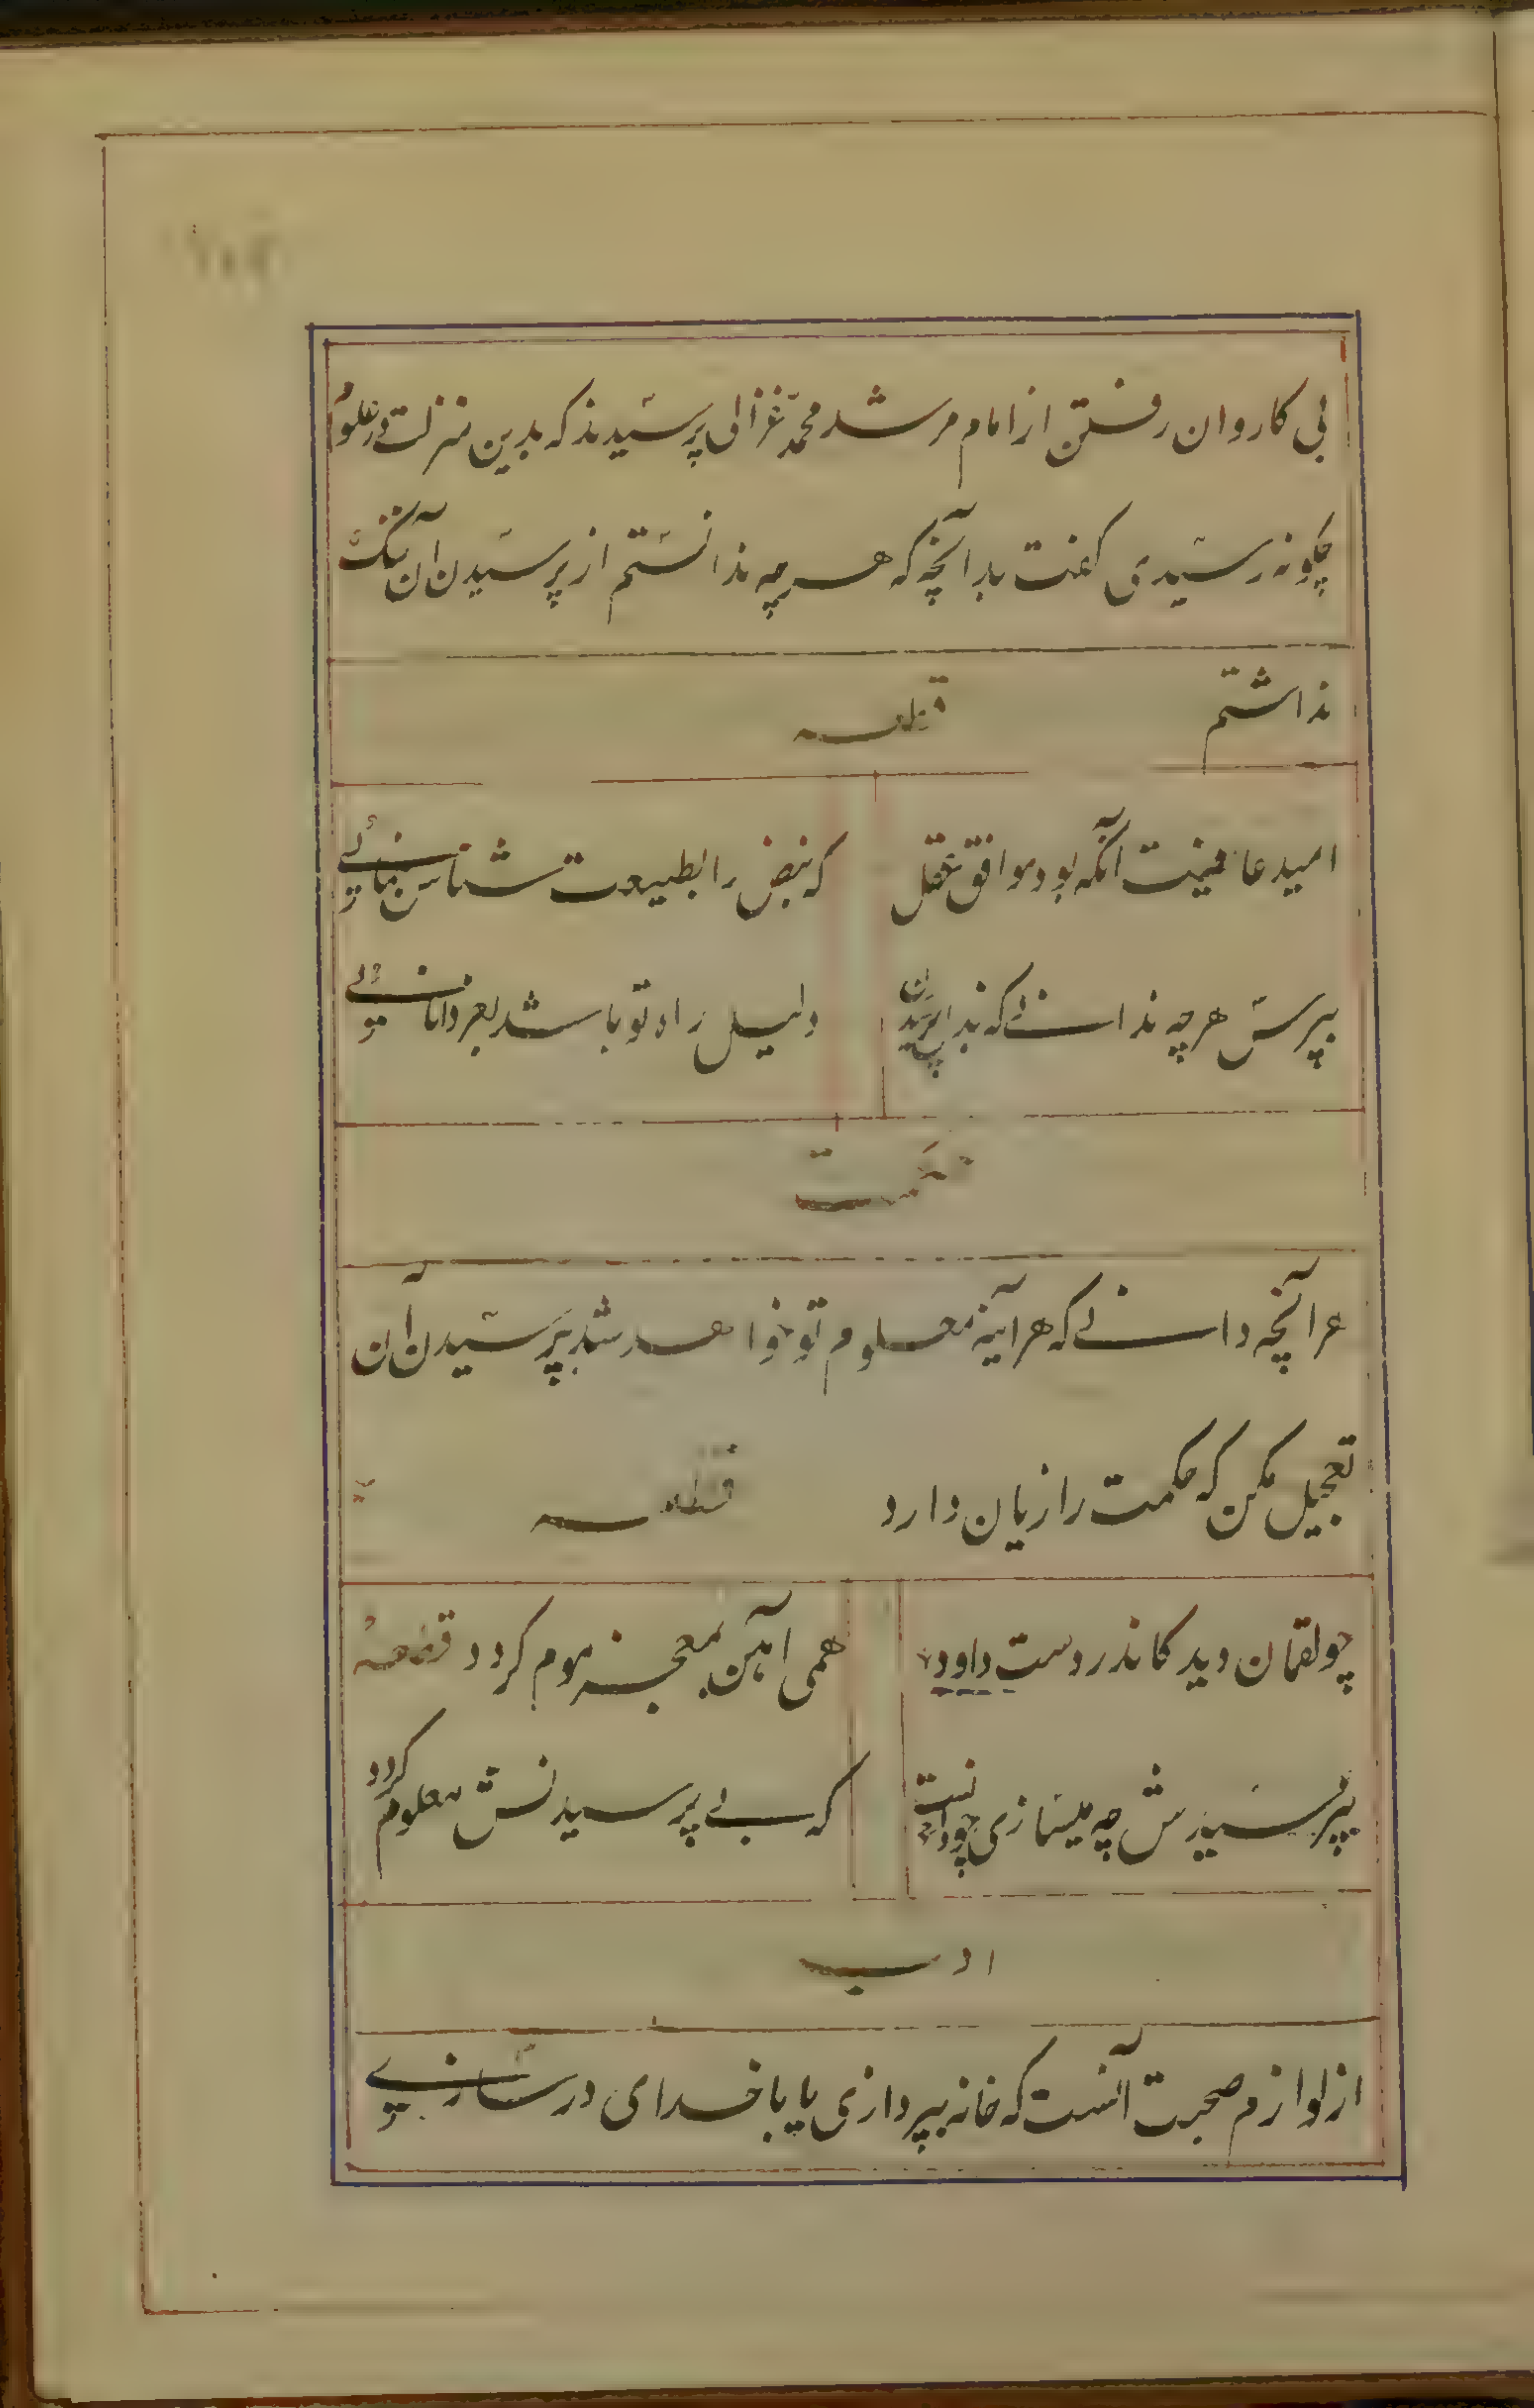 بی کاروان رفتن از امام مرشد محمد غزالی پرسیدند که بدین منزلت در علوم
چگونه رسیدی گفت بدانچه که هرچه ندانستم از پرسیدن آن ننگ
نداشتم قطعه
امید عافیت آنگه بود موافق عقل که نبض را بطبیعت شناس بنمائی
بپرس هرچه ندانی که ذل پرسیدن دلیل راه تو باشد بعز دانائی
حکمت
هرآنچه دانی که هرآینه معلوم تو خواهد شد بپرسیدن آن
تعجیل مکن که حکمت را زیان دارد قطعه
چو لقمان دید کاندر دست داود همی آهن بمعجز موم گردد
نپرسیدش چه میسازی چو دانست که بی پرسیدنش معلوم گردد
ادب
از لوازم صحبت آنست که خانه بپردازی یا با خدای درسازی